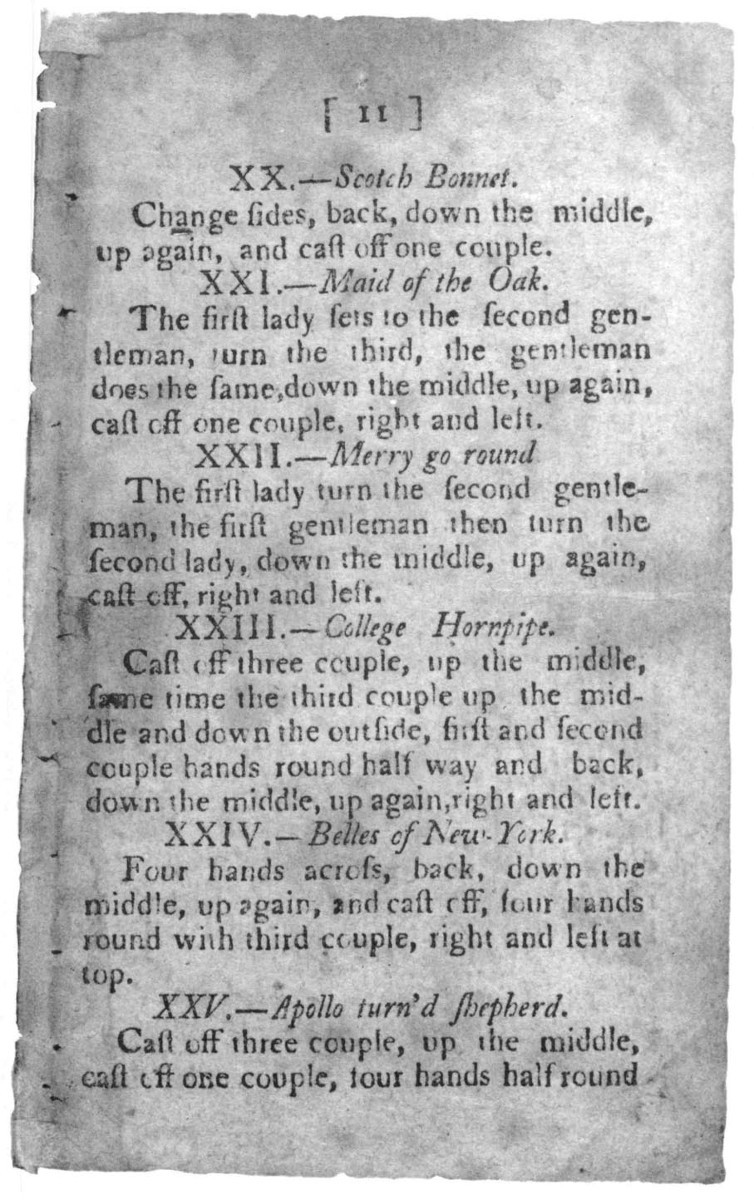 [ 11 ]
XX.—Scotch Bonnet.
Change ſides, back, down the middle,
up again, and caſt off one couple.
XXI.—Maid of the Oak.
The firſt lady ſets to the ſecond gen-
tleman, turn the third, the gentleman
does the ſame, down the middle, up again,
caſt off one couple, right and left.
XXII.—Merry go round
The firſt lady turn the ſecond gentle-
man, the firſt gentleman then turn the
ſecond lady, down the middle, up again,
caſt off, right and left.
XXIII.—College Hornpipe.
Caſt off three couple, up the middle,
ſame time the third couple up the mid-
dle and down the outſide, firſt and ſecond
couple hands round half way and back,
down the middle, up again, right and left.
XXIV.—Belles of New-York.
Four hands acroſs, back, down the
middle, up again, and caſt off, four hands
round with third couple, right and left at
top.
XXV.—Apollo turn'd ſhepherd.
Caſt off three couple, up the middle,
caſt off one couple, four hands half round